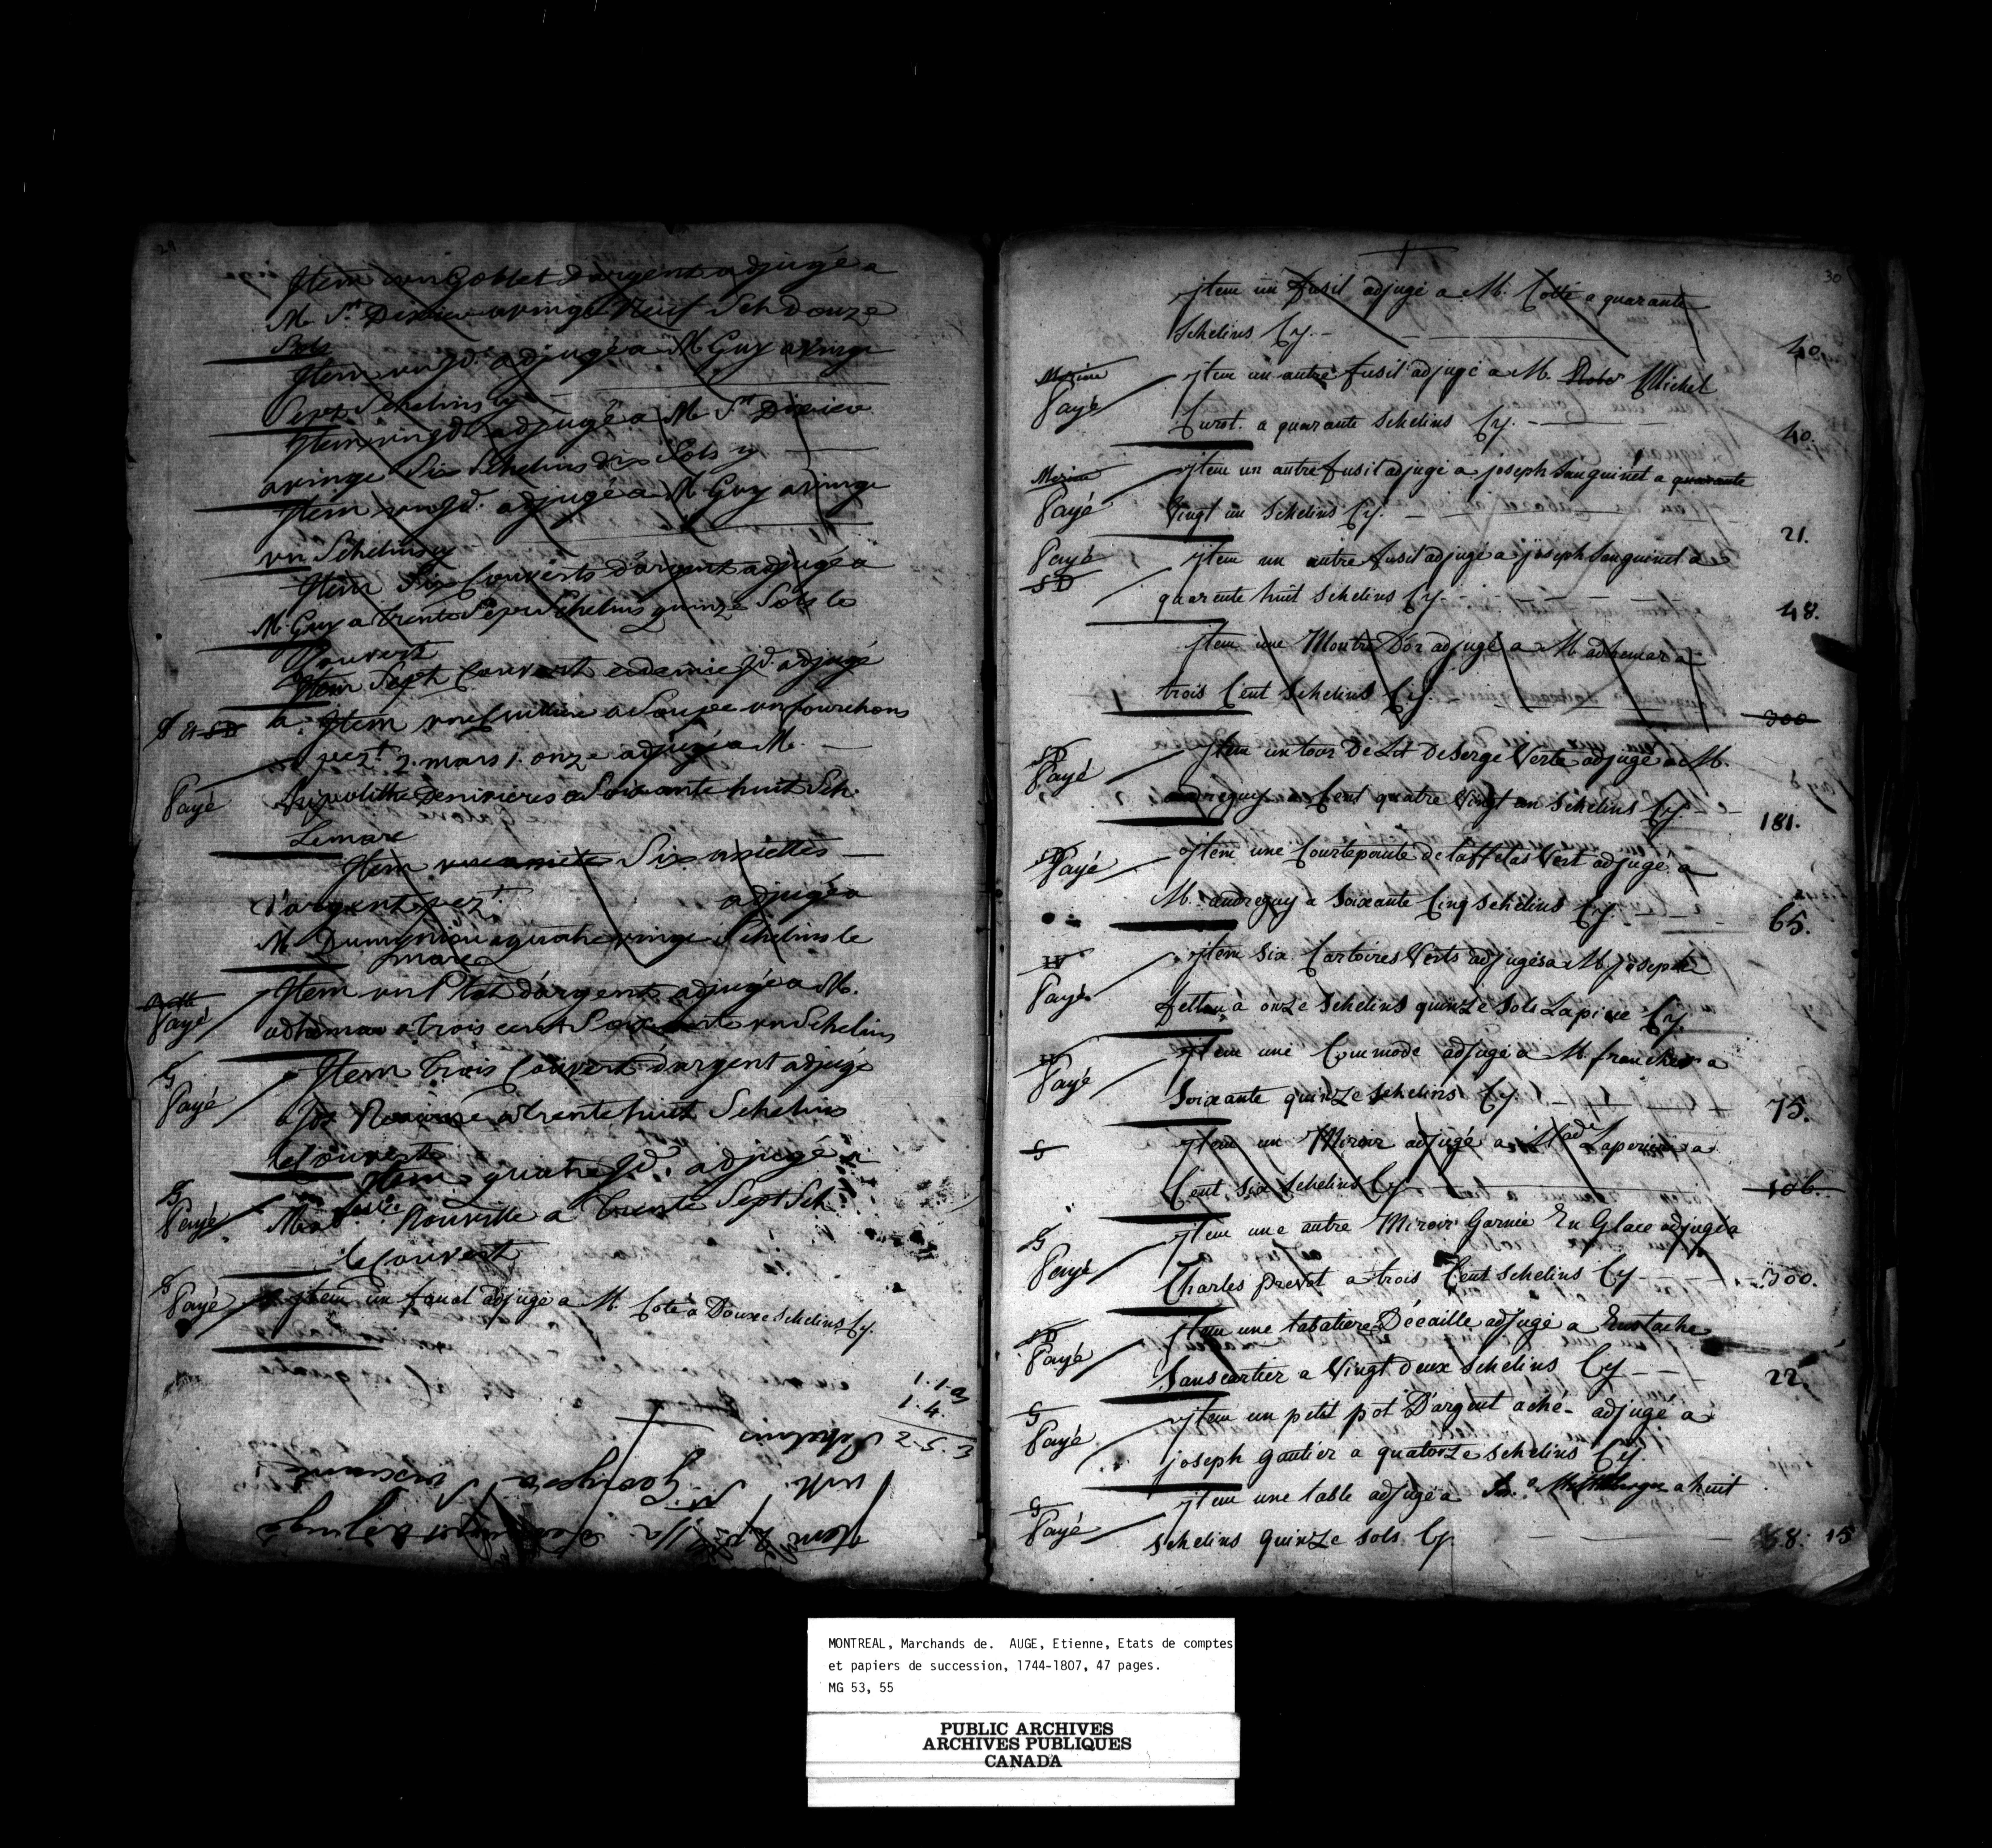 29
Item un Goblet d'argent adjugé a
M. St Dizier a vingt Neuf Sch Douze
Sols
Item un Jd. adjugé a M Guy a vingt
Sept Schelins Cy
Item un Jd. adjugé a M St Dizier
a vingt Six Schelins dix Sols y
Item un Jd. adjugé a M Guy a vingt
un Schelins y
Item Six Couverts d'argent adjugé a
M. Guy a trente Sept Schelins quinze Sols le
Couvert
Item Sept Couvert edemie Jd. adjugé
a. Item une Cuilliere a Soupe un fourchons
pezt 2. mars 1. onze adjugé a M.
Payé
hipolitte Denivieres a Soixante huit Sch.
Lemarc
Item une assiete Six assiettes
d'argent pezt adjugé a
M a quatre vingt Schelins le
marc
Item un Plat d'argent adjugé a M.
Payé
adhemar a trois cent Soixante un Schelin
G
Item trois Couvert d'argent adjugé
Payé
a Jos a trente huit Schelins
le Couvert
G
Item quatre Jd. adjugé a
Payé
Rouville a trente Sept Sch.
le Couvert
G
Payé
jtem un fanal adjugé a M. Coté a Douze Schelins Cy.
1. 1. 3
1. 4.
2. 5. 3
Schelins
Item adjugé
30
jtem un fusil adjugé a M. Cotté a quarante
Schelins Cy. 40.
jtem un autre fusil adjugé a M. Michel
Payé
Curot. a quarante Schelins Cy. 40.
jtem un autre fusil adjugé a joseph Sanguinet a quarante
Payé
Vingt un Schelins Cy. 21.
Payé
SD
jtem un autre fusil adjugé a joseph Sanguinet a
quarente huit Schelins Cy. 48.
jtem une Montre D'or adjugé a M adhemar a
trois Cent Schelins Cy. 300
SD
Payé
jtem un tour De Lit De Serge Verte adjugé a M.
andreguy a Cent quatre Vingt un Schelins Cy. 181.
SD
Payé
jtem une Courtepointe de taffetas Vert adjugé a
M. andreguy a Soixante Cinq Schelins Cy. 65.
jtem Six Verts adjugés a M. joseph
Payé
a onze Schelins quinze Sols Lapiece Cy.
jtem une Commode adjugé a M. francher a
Payé
Soixante quinze Schelins Cy. 75.
S
jtem un Miroir adjugé a Made Laperiere a
Cent Six Schelins Cy 106.
G
Payé
jtem une autre Miroir Garnie En Glace adjugé a
Charles prevot a trois Cent Schelins Cy 300.
SD
Payé
jtem une tabatiere D'écaille adjugé a Eustache
Sanscartier a Vingt deux Schelins Cy 22.
G
Payé
jtem un petit pot D'argent aché adjugé a
joseph Gautier a quatorze Schelins Cy.
G
Payé
jtem une table adjugé a a huit
Schelins quinze Sols Cy. 8. 15
MONTREAL, Marchands de. AUGE, Etienne, Etats de comptes
et papiers de succession, 1744-1807, 47 pages.
MG 53, 55
PUBLIC ARCHIVES
ARCHIVES PUBLIQUES
CANADA